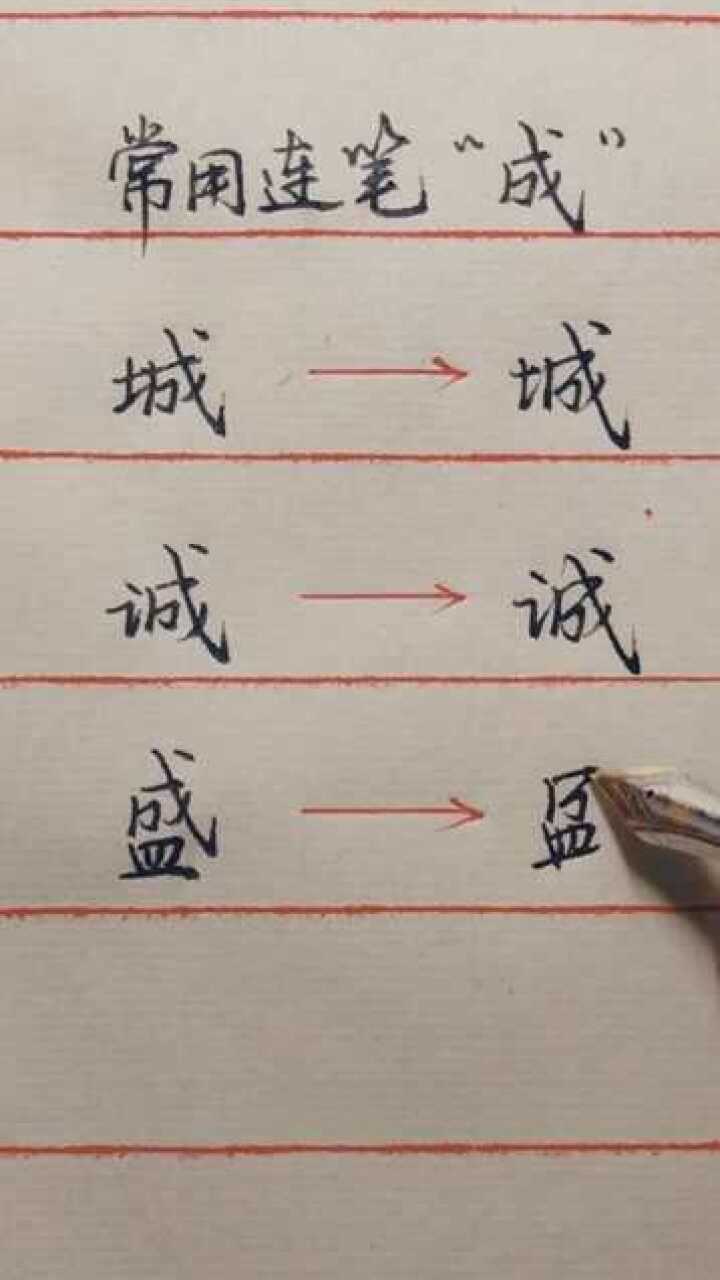 常用连笔“成”
城 → 城
诚 → 诚
盛 →